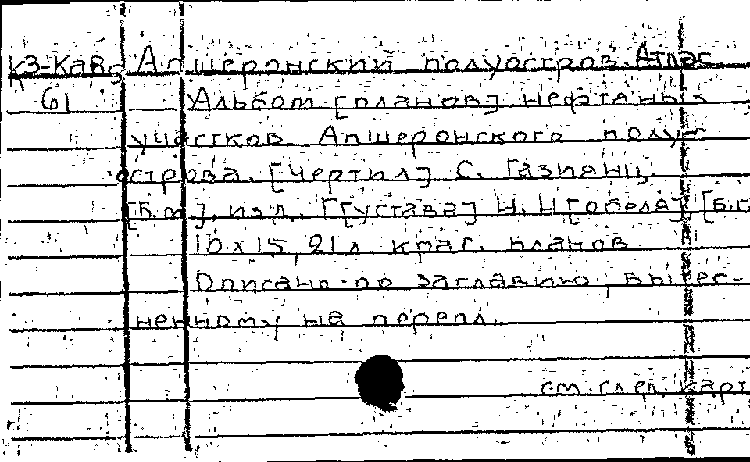 К3-Кав. Апшеронский полуостров. Атлас
61 Альбом [планов] нефтяных
участков Апшеронского полуо-
острова. [Чертил] С. Газиянц.
[Б.м.], изд. Г[устава] И. Н[обеля] [б.г.
10х15, 21 л. крас. планов
Описано по заглавию, вытес-
ненному на перепл.
см. след. карт